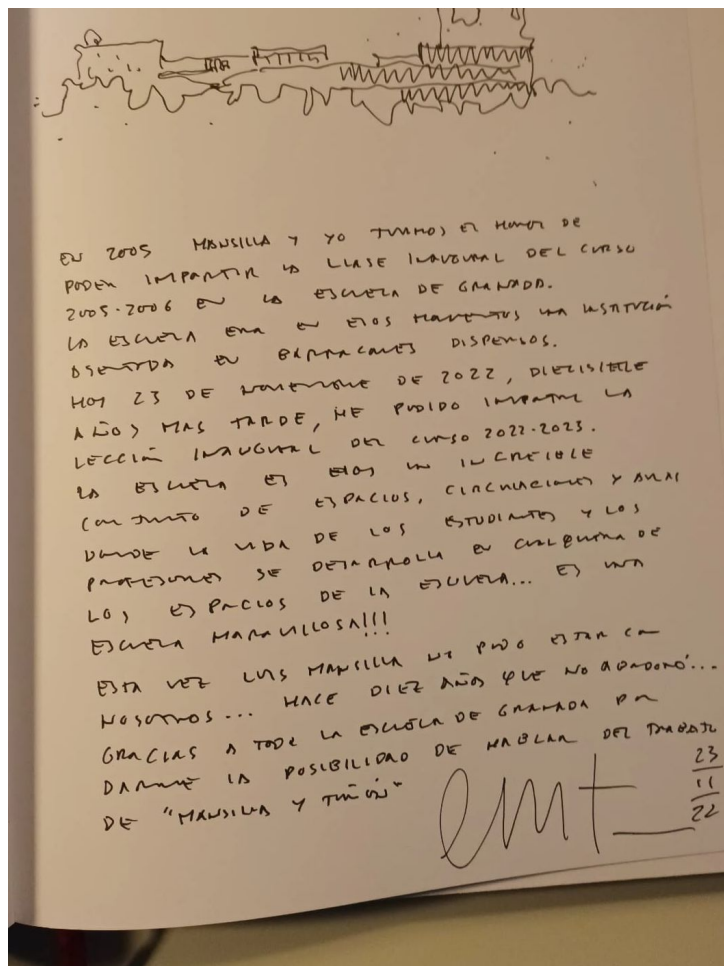 EN 2005 MANSILLA Y YO TUVIMOS EL HONOR DE
PODER IMPARTIR LA CLASE INAUGURAL DEL CURSO
2005-2006 EN LA ESCUELA DE GRANADA.
LA ESCUELA ERA EN ESOS MOMENTOS UNA INSTITUCIÓN
ASENTADA EN BARRACONES DISPERSOS.
HOY 23 DE NOVIEMBRE DE 2022, DIECISIETE
AÑOS MAS TARDE, HE PODIDO IMPARTIR LA
LECCIÓN INAUGURAL DEL CURSO 2022-2023.
LA ESCUELA ES UN INCREIBLE
CONJUNTO DE ESPACIOS, CIRCULACIONES Y AULAS
DONDE LA VIDA DE LOS ESTUDIANTES Y LOS
PROFESORES SE DESARROLLA EN CUALQUIERA DE
LOS ESPACIOS DE LA ESCUELA... ES UNA
ESCUELA MARAVILLOSA!!!
ESTA VEZ LUIS MANSILLA NO PUDO ESTAR CON
NOSOTROS... HACE DIEZ AÑOS QUE NOS ABANDONÓ...
GRACIAS A TODA LA ESCUELA DE GRANADA POR
DARME LA POSIBILIDAD DE HABLAR DEL TRABAJO
DE "MANSILLA Y TUÑÓN"
emt
23
11
22